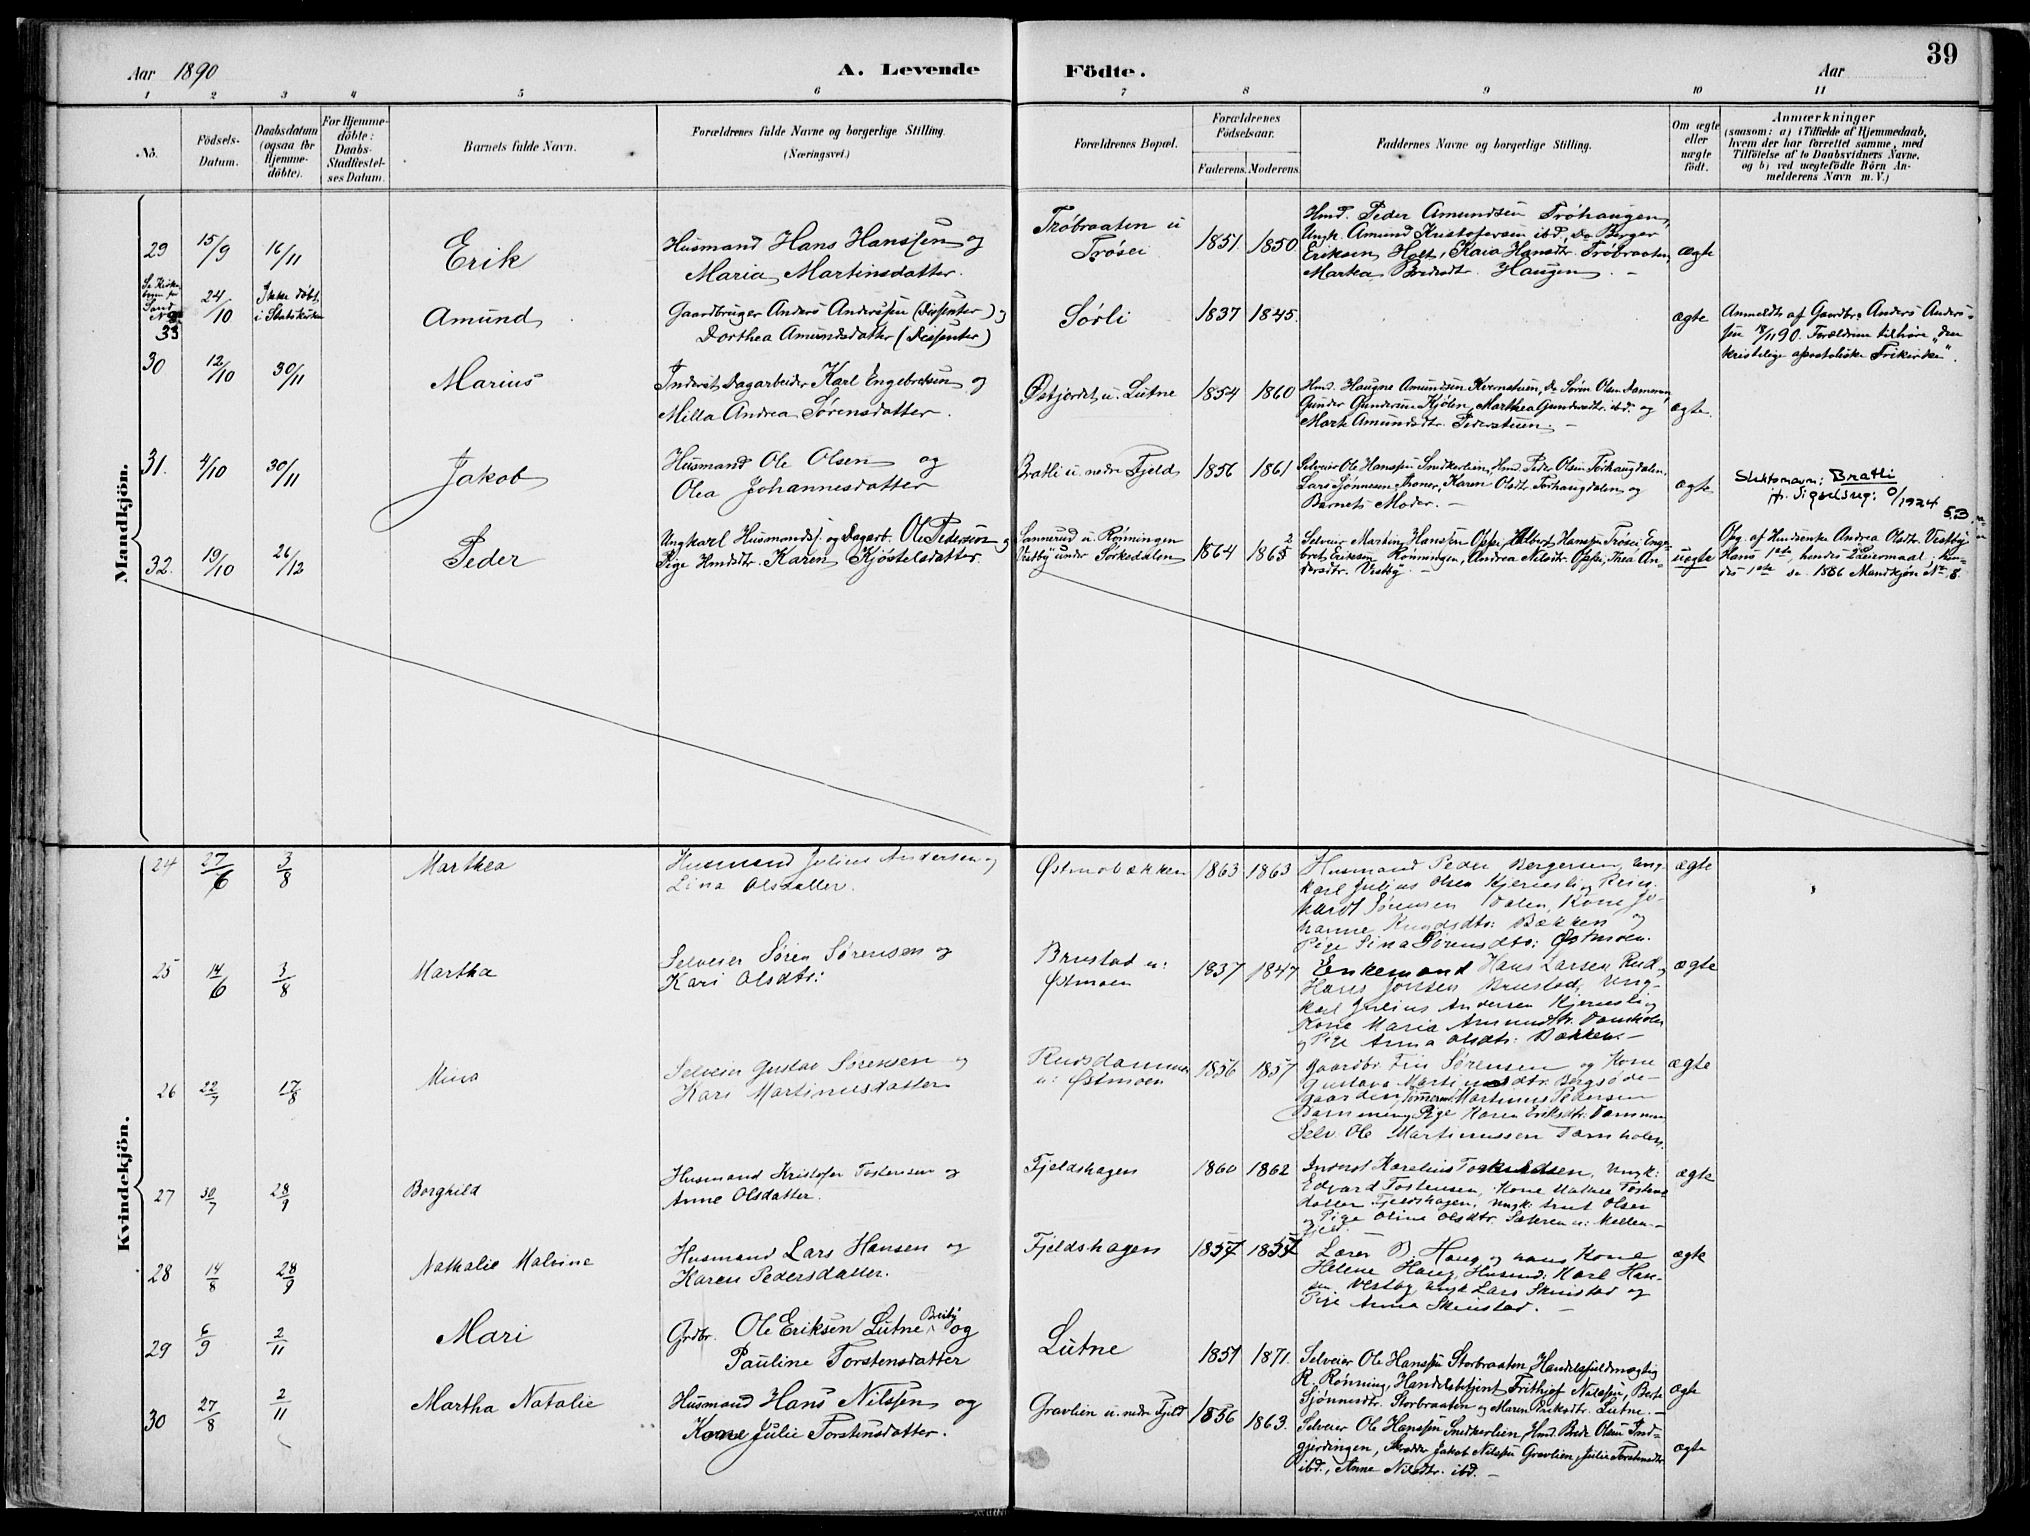 Aar 1890
A. Levende
Födte.
Aar
39
1 2 3 4 5 6 7 8 9 10 11
No.
Födsels-
Datum.
Daabsdatum
(ogsaa for
Hjemme-
döbte).
For Hjemme-
döbte:
Daabs-
Stadfæstel-
ses Datum.
Barnets fulde Navn.
Forældrenes fulde Navne og borgerlige Stilling.
(Næringsvei.)
Forældrenes Bopæl.
Forældrenes
Födselsaar.
Faderens. Moderens.
Faddernes Navne og borgerlige Stilling.
Om ægte
eller
uægte
födt.
Anmærkninger
(saasom: a) i Tilfælde af Hjemmedaab,
hvem der har forrettet samme, med
Tilföielse af to Daabsvidners Navne,
og b) ved uægtefödte Börn An-
melderens Navn m. V.)
Mandkjön.
29
15/9
16/11
Erik
Husmand Hans Hanssen og
Maria Martinsdatter.
Trøbraaten u
Trøsei
1851. 1850
Hmd. Peder Amundsen Trøhaugen,
Ungk. Amund Kristofersen ibd, Do Berger
Eriksen Holt, Kaia Hansdtr. Trøbraaten,
Marthea Haugen. –
ægte
33
24/10
Ikke døbt
i Statskirken
Amund
Gaardbruger Anders Anderssen (Dissenter) og
Dorthea Amundsdatter (Dissenter)
Sørli
1837 1845.
ægte
Anmeldt af Gaardbr. Anders Anders-
sen 18/11 90. Forældrene tilhøre „den
kristelige apostoliske Frikirke".
30
12/10
30/11
Marius
Inderst, Dagarbeider Karl Engebretsen og
Milla Andrea Sørensdatter.
Østjordet u. Lutne
1854 1860
Hmd. Haugne Amundsen Kvernstuen, Do Søren Olsen Dammen,
Gunder Gundersen Kjølen, Marthea Gundersdtr. ibd. og
Marte Amundsdtr. Pederstuen. –
ægte.
31.
4/10
30/11
Jakob
Husmand Ole Olsen og
Olea Johannesdatter
Bratli u. nedre Fjeld
1856 1861
Selveier Ole Hanssen Snedkerlien, Hmd. Peder Olsen Torhaugdalen,
Lars Sjønnesen Moner, Karen Olsdtr. Torhaugdalen og
Barnets Moder. –
ægte
Slektsnavn: Bratli
0/1924
53
32.
19/10
26/12
Peder
Ungkarl Husmands. og Dagarb. Ole Pedersen og
Pige Hmdsdtr. Karen Kjøstelsdatter.
Sannerud u. Rønningen
Vestby under Sørkedalen
1864 1865
Selveier Martin Hanssen Oppi, Albert Hanssen Trøsei, Enge-
bret Eriksen Rønningen, Andrea Nilsdtr. Oppi, Thea An-
dersdtr. Vestby. –
uægte
Opg. af Huusenke Andrea Olsdtr. Vestby
Hans 1ste, hendes 2det Leiermaal, hen-
des 1ste se 1886 Mandkjøn No 8.
Kvindekjön.
24
27/6
3/8
Marthea
Husmand Julius Andersen og
Lina Olsdatter.
Østmobækken
1863 1863
Husmand Peder Bergersen, Ung-
karl Julius Olsen Kjernsli, Rein-
hardt Sørensen Dalen, Kone Jo-
hanne Knudsdtr: Bækken og
Pige Lina Sørensdtr: Østmoen.
ægte
25
14/6
3/8
Martha
Selveier Søren Sørensen og
Kari Olsdtr:
Brustad u:
Østmoen
1837 1847
Enkemand Hans Larsen Rud,
Hans Jonsen Brustad, Ung-
karl Julius Andersen Kjernsli,
Kone Maria Amundsdtr. Damholen
og Pige Anna Olsdtr: Bækken. –
ægte
26
22/7
17/8
Mina
Selveier Gustav Sørensen og
Kari Martinusdatter
Rudsdammen
u: Østmoen
1856 1857
Gaardbr. Fin Sørensen og Kone
Gustava Martinusdtr. Bergsøde-
gaarden, Tømrer Martinus Pedersen
Dammen, Pige Karen Eriksdtr. Dammen
Selv. Ole Martinussen Damholen.
ægte
27
30/7
28/9
Borghild
Husmand Kristofer Tostensen og
Anne Olsdatter.
Fjeldshagen
1860 1862
Inderst Karelius Torkildsen, Ungk:
Edvard Tostensen, Kone Mathea Tostens-
datter Fjeldshagen, Ungk: Arnt Olsen
og Pige Oline Olsdtr. Sæteren u: Mellem-
fjeld.
ægte
28
14/8
28/9
Nathalie Malvine
Husmand Lars Hansen og
Karen Pedersdatter.
Fjeldshagen
1857 1857
Lærer B. Haug og hans Kone
Helene Haug, Husmd: Karl Han-
sen Vestby, Ungk Lars Skinstad og
Pige Anna Skinstad. –
ægte
29
6/9
2/11
Mari
Grdbr. Ole Eriksen Lutne Breiby og
Pauline Torstensdatter
Lutne
1851 1871.
Selveier Ole Hanssen Storbraaten, Handelsfuldmægtig
R. Rønning, Handelsbetjent Frithjof Nilssen, Berte
Sjønnesdtr. Storbraaten og Maren Eriksdtr. Lutne. –
ægte
30
27/8
2/11
Martha Natalie
Husmand Hans Nilssen og
Kone Julie Torstensdatter.
Gravlien u. nedre Fjeld
1856 1863.
Selveier Ole Hanssen Snedkerlien, Hmd. Brede Olsen Ind-
gjerdingen, Skrædder Jakob Nilssen Gravlien, Julie Torstensdtr.
ibd., Anne Nilsdtr. ibd. –
ægte